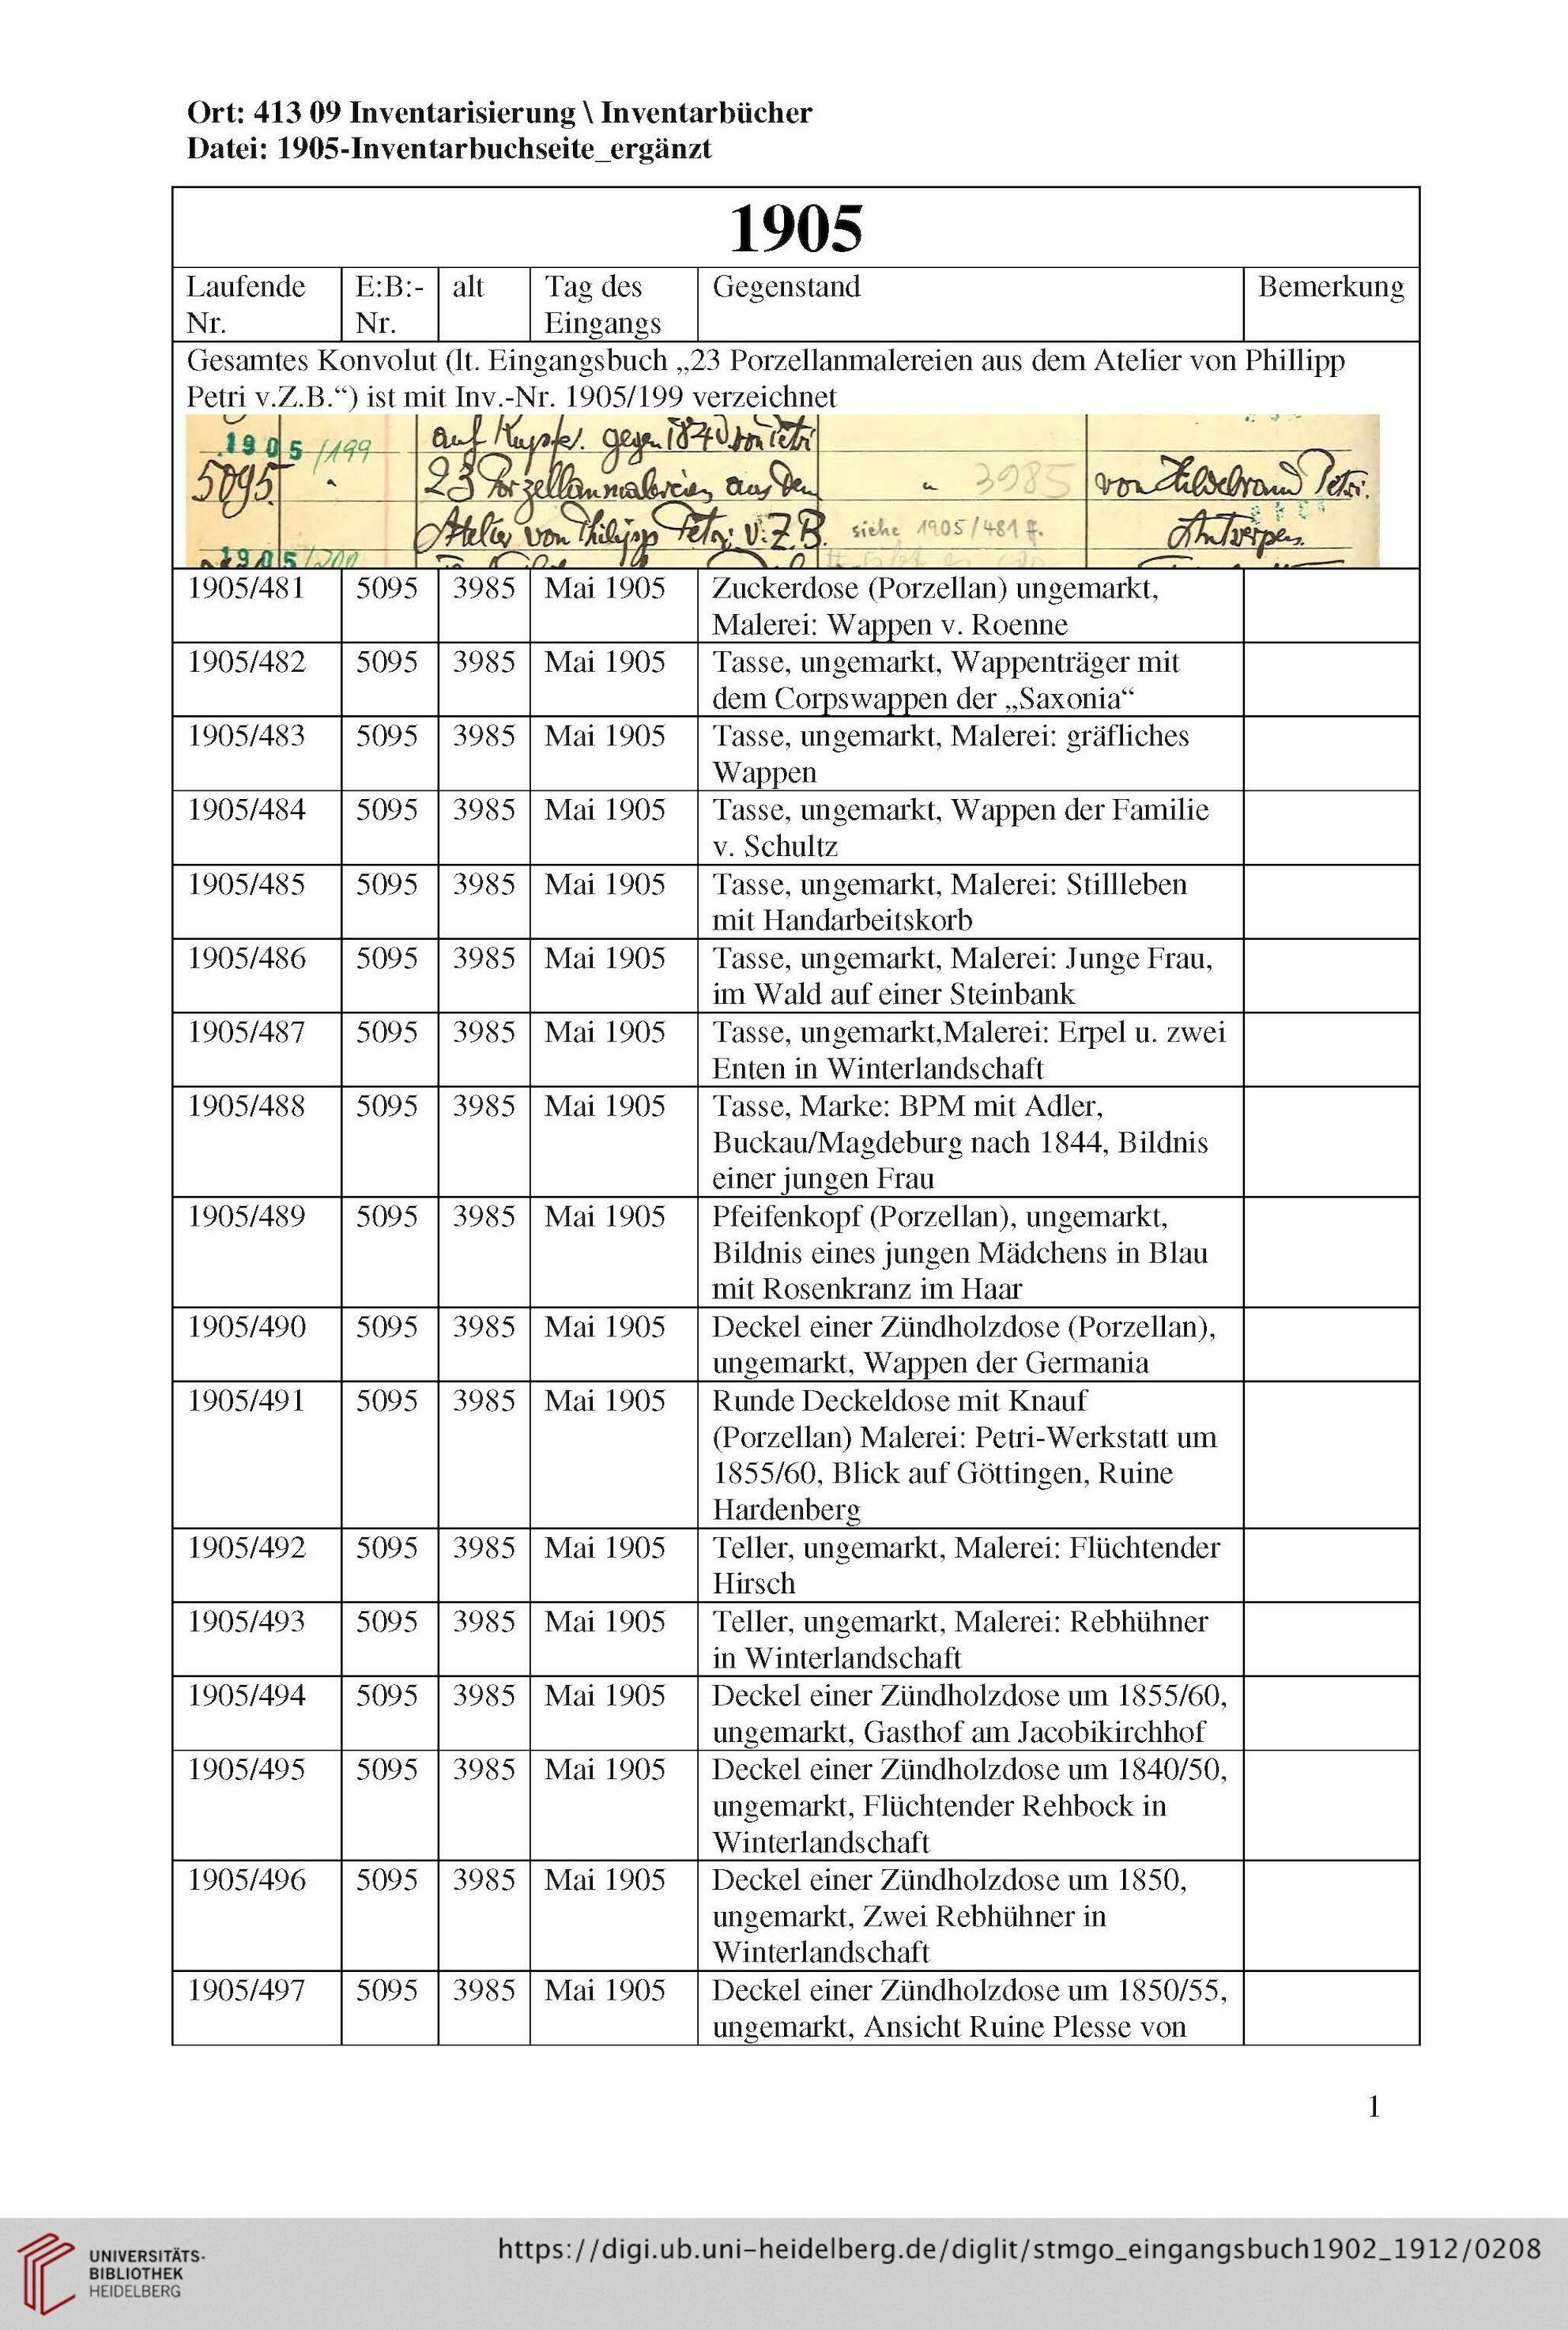 Ort: 413 09 Inventarisierung \ Inventarbücher
Datei: 1905-Inventarbuchseite_ergänzt
1905
Laufende Nr. E:B:-Nr. alt Tag des Eingangs Gegenstand Bemerkung
Gesamtes Konvolut (lt. Eingangsbuch „23 Porzellanmalereien aus dem Atelier von Phillipp
Petri v.Z.B.“) ist mit Inv.-Nr. 1905/199 verzeichnet
1905/199 auf Kupfer. gegen 1840 von Petri
5095 " 23 Porzellanmalereien aus dem " 3985 von Hildebrand Petri.
Atelier von Philipp Petri v. Z. B. siehe 1905/481 ff. Antwerpen.
1905/200
1905/481 5095 3985 Mai 1905 Zuckerdose (Porzellan) ungemarkt,
Malerei: Wappen v. Roenne
1905/482 5095 3985 Mai 1905 Tasse, ungemarkt, Wappenträger mit
dem Corpswappen der „Saxonia“
1905/483 5095 3985 Mai 1905 Tasse, ungemarkt, Malerei: gräfliches
Wappen
1905/484 5095 3985 Mai 1905 Tasse, ungemarkt, Wappen der Familie
v. Schultz
1905/485 5095 3985 Mai 1905 Tasse, ungemarkt, Malerei: Stillleben
mit Handarbeitskorb
1905/486 5095 3985 Mai 1905 Tasse, ungemarkt, Malerei: Junge Frau,
im Wald auf einer Steinbank
1905/487 5095 3985 Mai 1905 Tasse, ungemarkt,Malerei: Erpel u. zwei
Enten in Winterlandschaft
1905/488 5095 3985 Mai 1905 Tasse, Marke: BPM mit Adler,
Buckau/Magdeburg nach 1844, Bildnis
einer jungen Frau
1905/489 5095 3985 Mai 1905 Pfeifenkopf (Porzellan), ungemarkt,
Bildnis eines jungen Mädchens in Blau
mit Rosenkranz im Haar
1905/490 5095 3985 Mai 1905 Deckel einer Zündholzdose (Porzellan),
ungemarkt, Wappen der Germania
1905/491 5095 3985 Mai 1905 Runde Deckeldose mit Knauf
(Porzellan) Malerei: Petri-Werkstatt um
1855/60, Blick auf Göttingen, Ruine
Hardenberg
1905/492 5095 3985 Mai 1905 Teller, ungemarkt, Malerei: Flüchtender
Hirsch
1905/493 5095 3985 Mai 1905 Teller, ungemarkt, Malerei: Rebhühner
in Winterlandschaft
1905/494 5095 3985 Mai 1905 Deckel einer Zündholzdose um 1855/60,
ungemarkt, Gasthof am Jacobikirchhof
1905/495 5095 3985 Mai 1905 Deckel einer Zündholzdose um 1840/50,
ungemarkt, Flüchtender Rehbock in
Winterlandschaft
1905/496 5095 3985 Mai 1905 Deckel einer Zündholzdose um 1850,
ungemarkt, Zwei Rebhühner in
Winterlandschaft
1905/497 5095 3985 Mai 1905 Deckel einer Zündholzdose um 1850/55,
ungemarkt, Ansicht Ruine Plesse von
1
UNIVERSITÄTS-
BIBLIOTHEK
HEIDELBERG
https://digi.ub.uni-heidelberg.de/diglit/stmgo_eingangsbuch1902_1912/0208